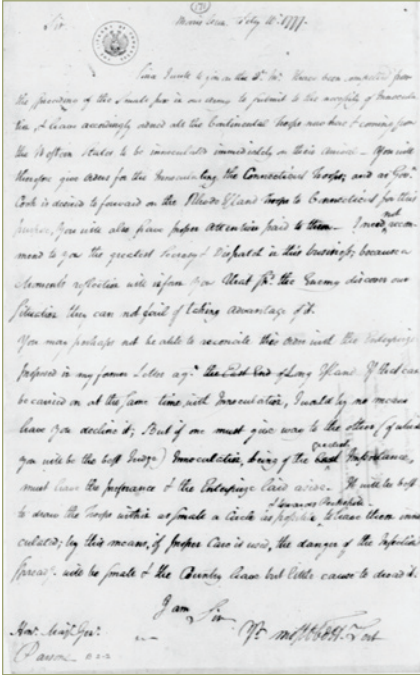 Sir Morris Town Feby 10th 1777.
Since I wrote to you on the I have been compelled from
the spreading of the Small pox in our army to submit to the necessity of Innocula
tion & have accordingly ordered all the Continental Troops now here & coming from
the Western States to be innoculated immediately on their arrival — You will
therefore give orders for the Innoculating the Connecticut Troops; and as Govr
Cook is desired to forward on the Rhode Island Troops to Connecticut for this
purpose, You will also have proper attention paid to them — I need not recom
mend to you the greatest Secrecy & Dispatch in this business; because a
Moments reflection will inform you that shd the Enemy discover our
Situation they can not fail of taking advantage of it.
You may perhaps not be able to reconcile this order with the Enterprize
proposed in my former Letter agt the East End of Long Island. If that can
be carried on at the same time, with Innoculation, I would by no means
have you decline it; But if one must give way to the other (of which
you will be the best Judge) Innoculation, being of the greatest Importance,
must have the preference & the Enterprize laid aside. It will be best
to draw the Troops within as small a Circle as possible to have them inno
culated; by this means, if proper Care is used, the danger of the Infection
spreadg will be small & the Country have but little cause to dread it.
I am Sir
Yr most Obt H. Servt
Honl Majr Genl
Parsons